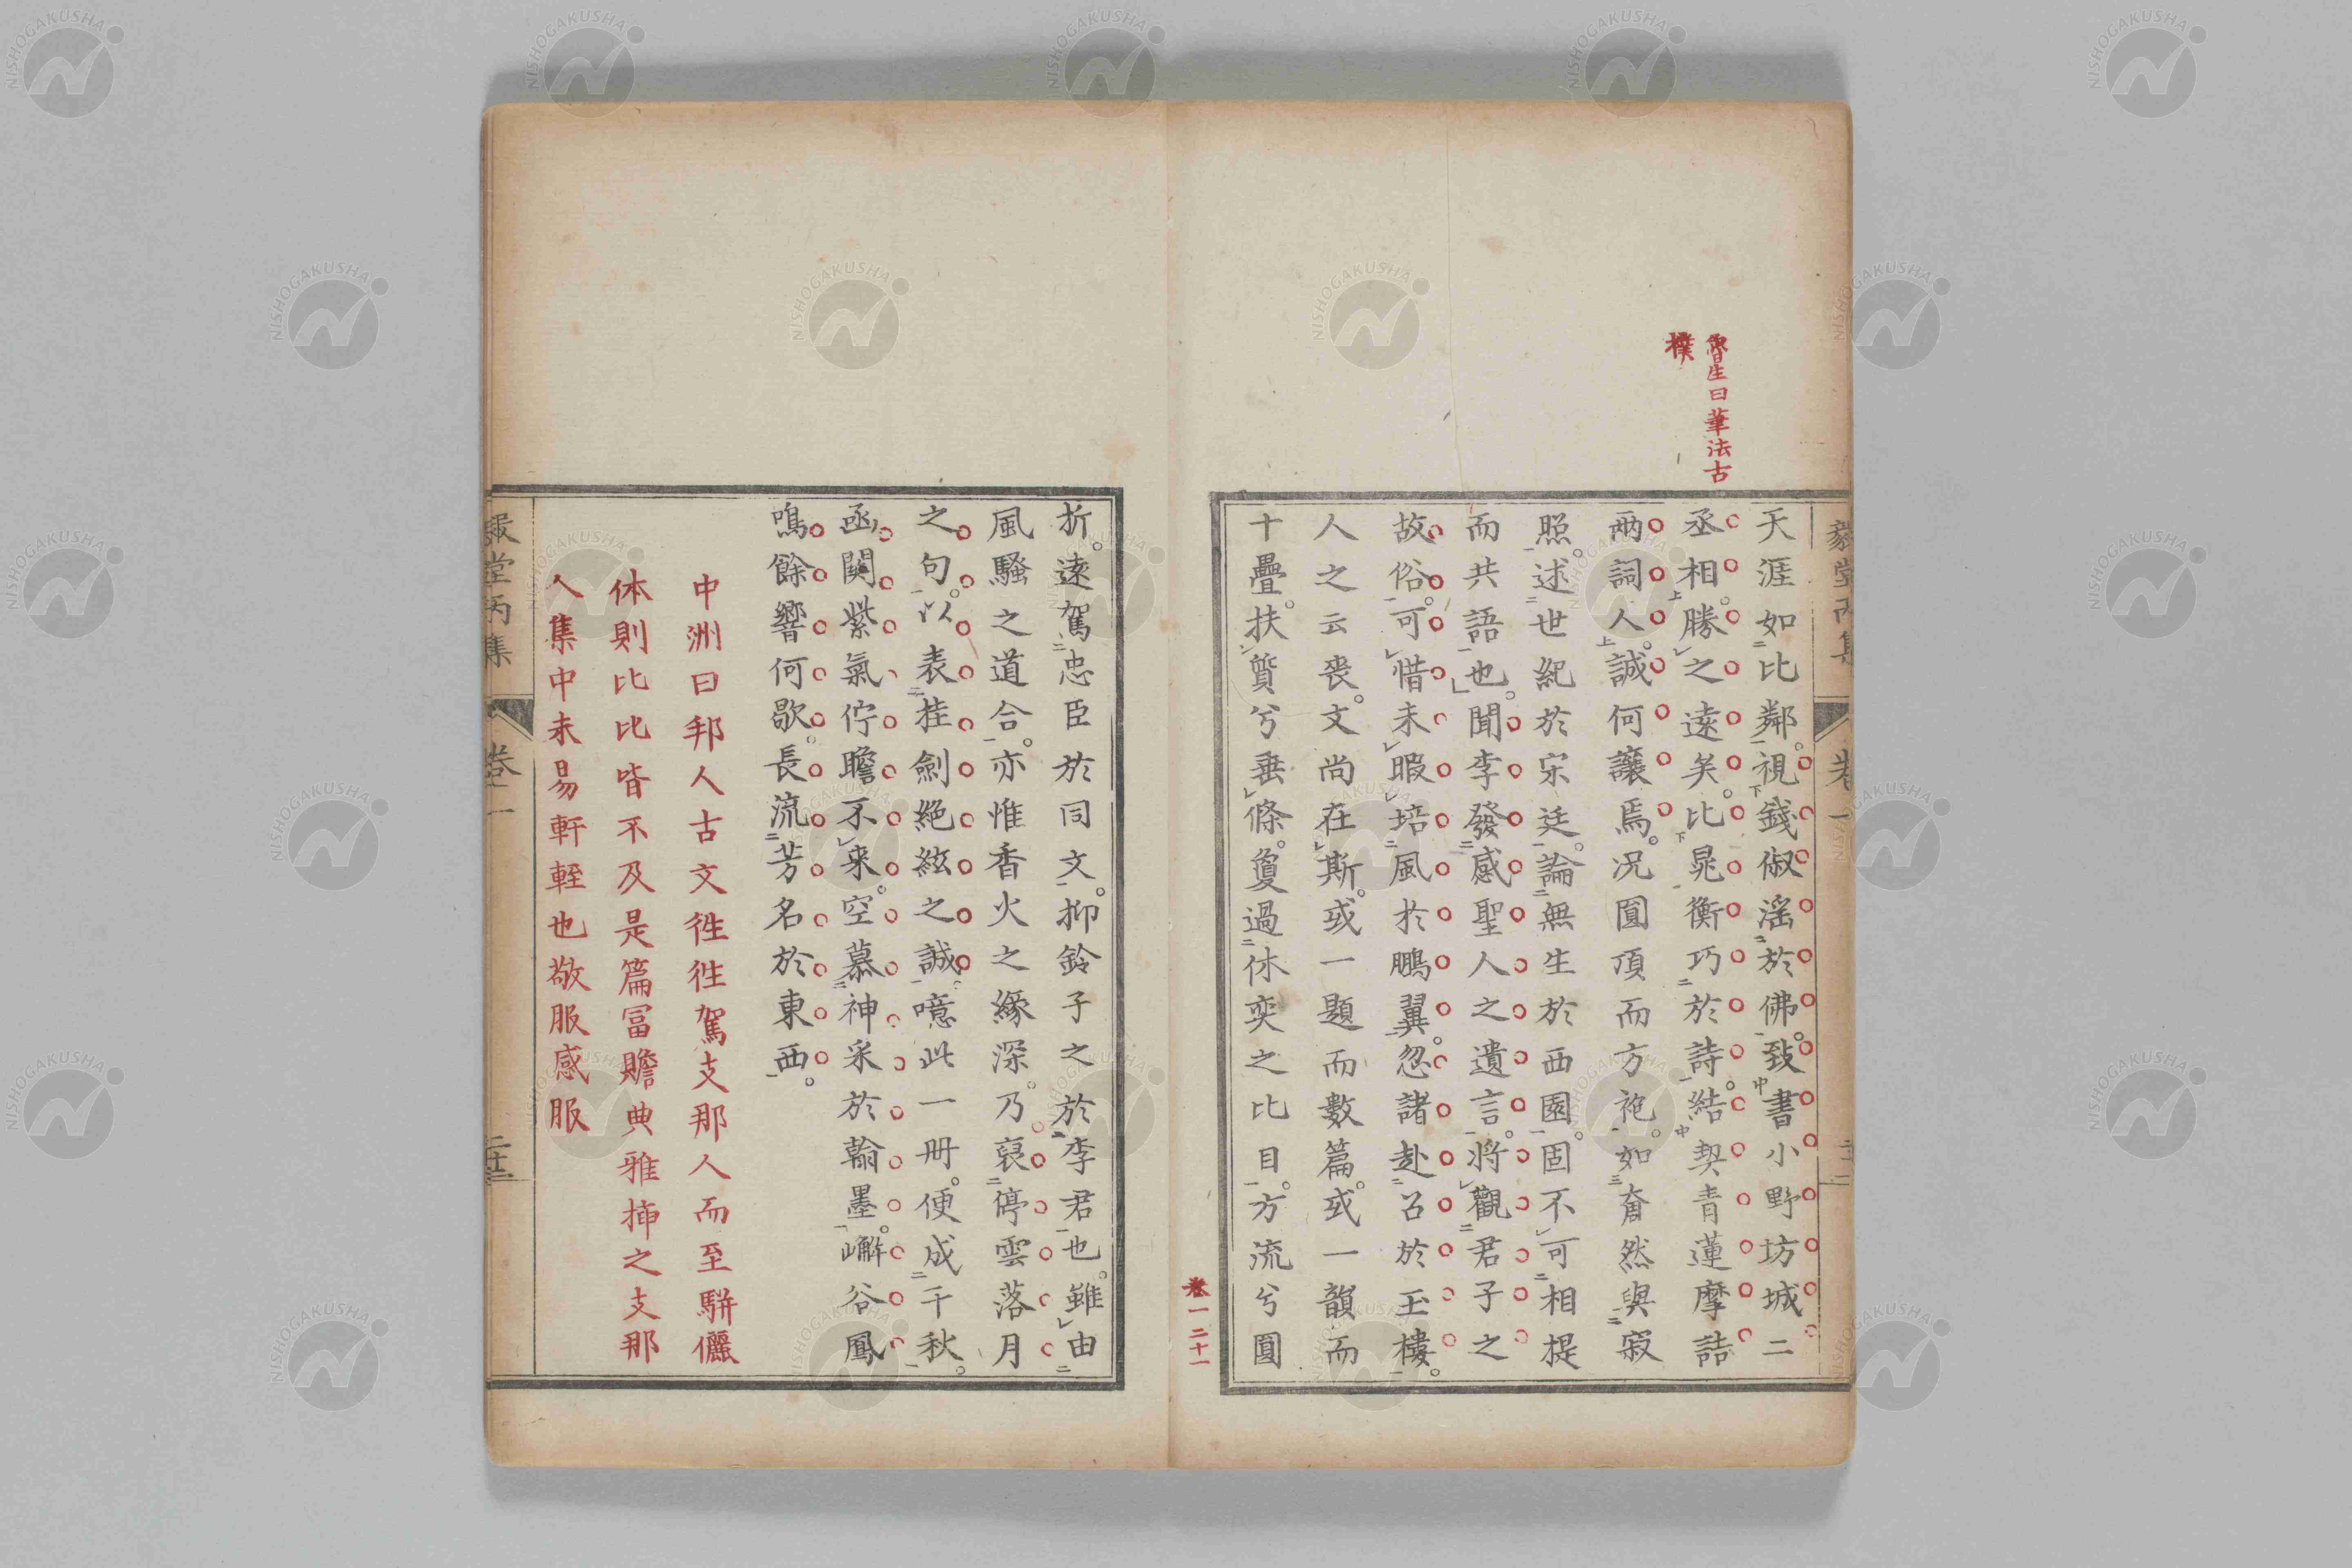 魯生曰筆法古
樸
毅堂丙集
卷一
天涯如比鄰視錢俶滛於佛致書小野坊城二
丞相勝之遠矣比晁衡巧於詩結契青蓮摩詰
兩詞人誠何讓焉况圓頂而方袍如奝然與寂
照述世紀於宋廷論無生於西園固不可相提
而共語也聞李發感聖人之遺言將觀君子之
故俗可惜未暇培風於鵬翼忽諸赴召於玉樓
人之云喪文尚在斯或一題而數篇或一韻而
十疊扶質兮垂條敻過休奕之比目方流兮圓
卷一 二十一
折遠駕忠臣於同文抑鈴子之於李君也雖由
風騷之道合亦惟香火之緣深乃裒停雲落月
之句以表挂劍絕絃之誠噫此一冊便成千秋
函関紫氣佇瞻不来空慕神采於翰墨嶰谷鳳
鳴餘響何歇長流芳名於東西
中洲曰邦人古文徃徃駕支那人而至駢儷
体則比比皆不及是篇冨贍典雅揷之支那
人集中未易軒輊也敬服感服
毅堂丙集
卷一